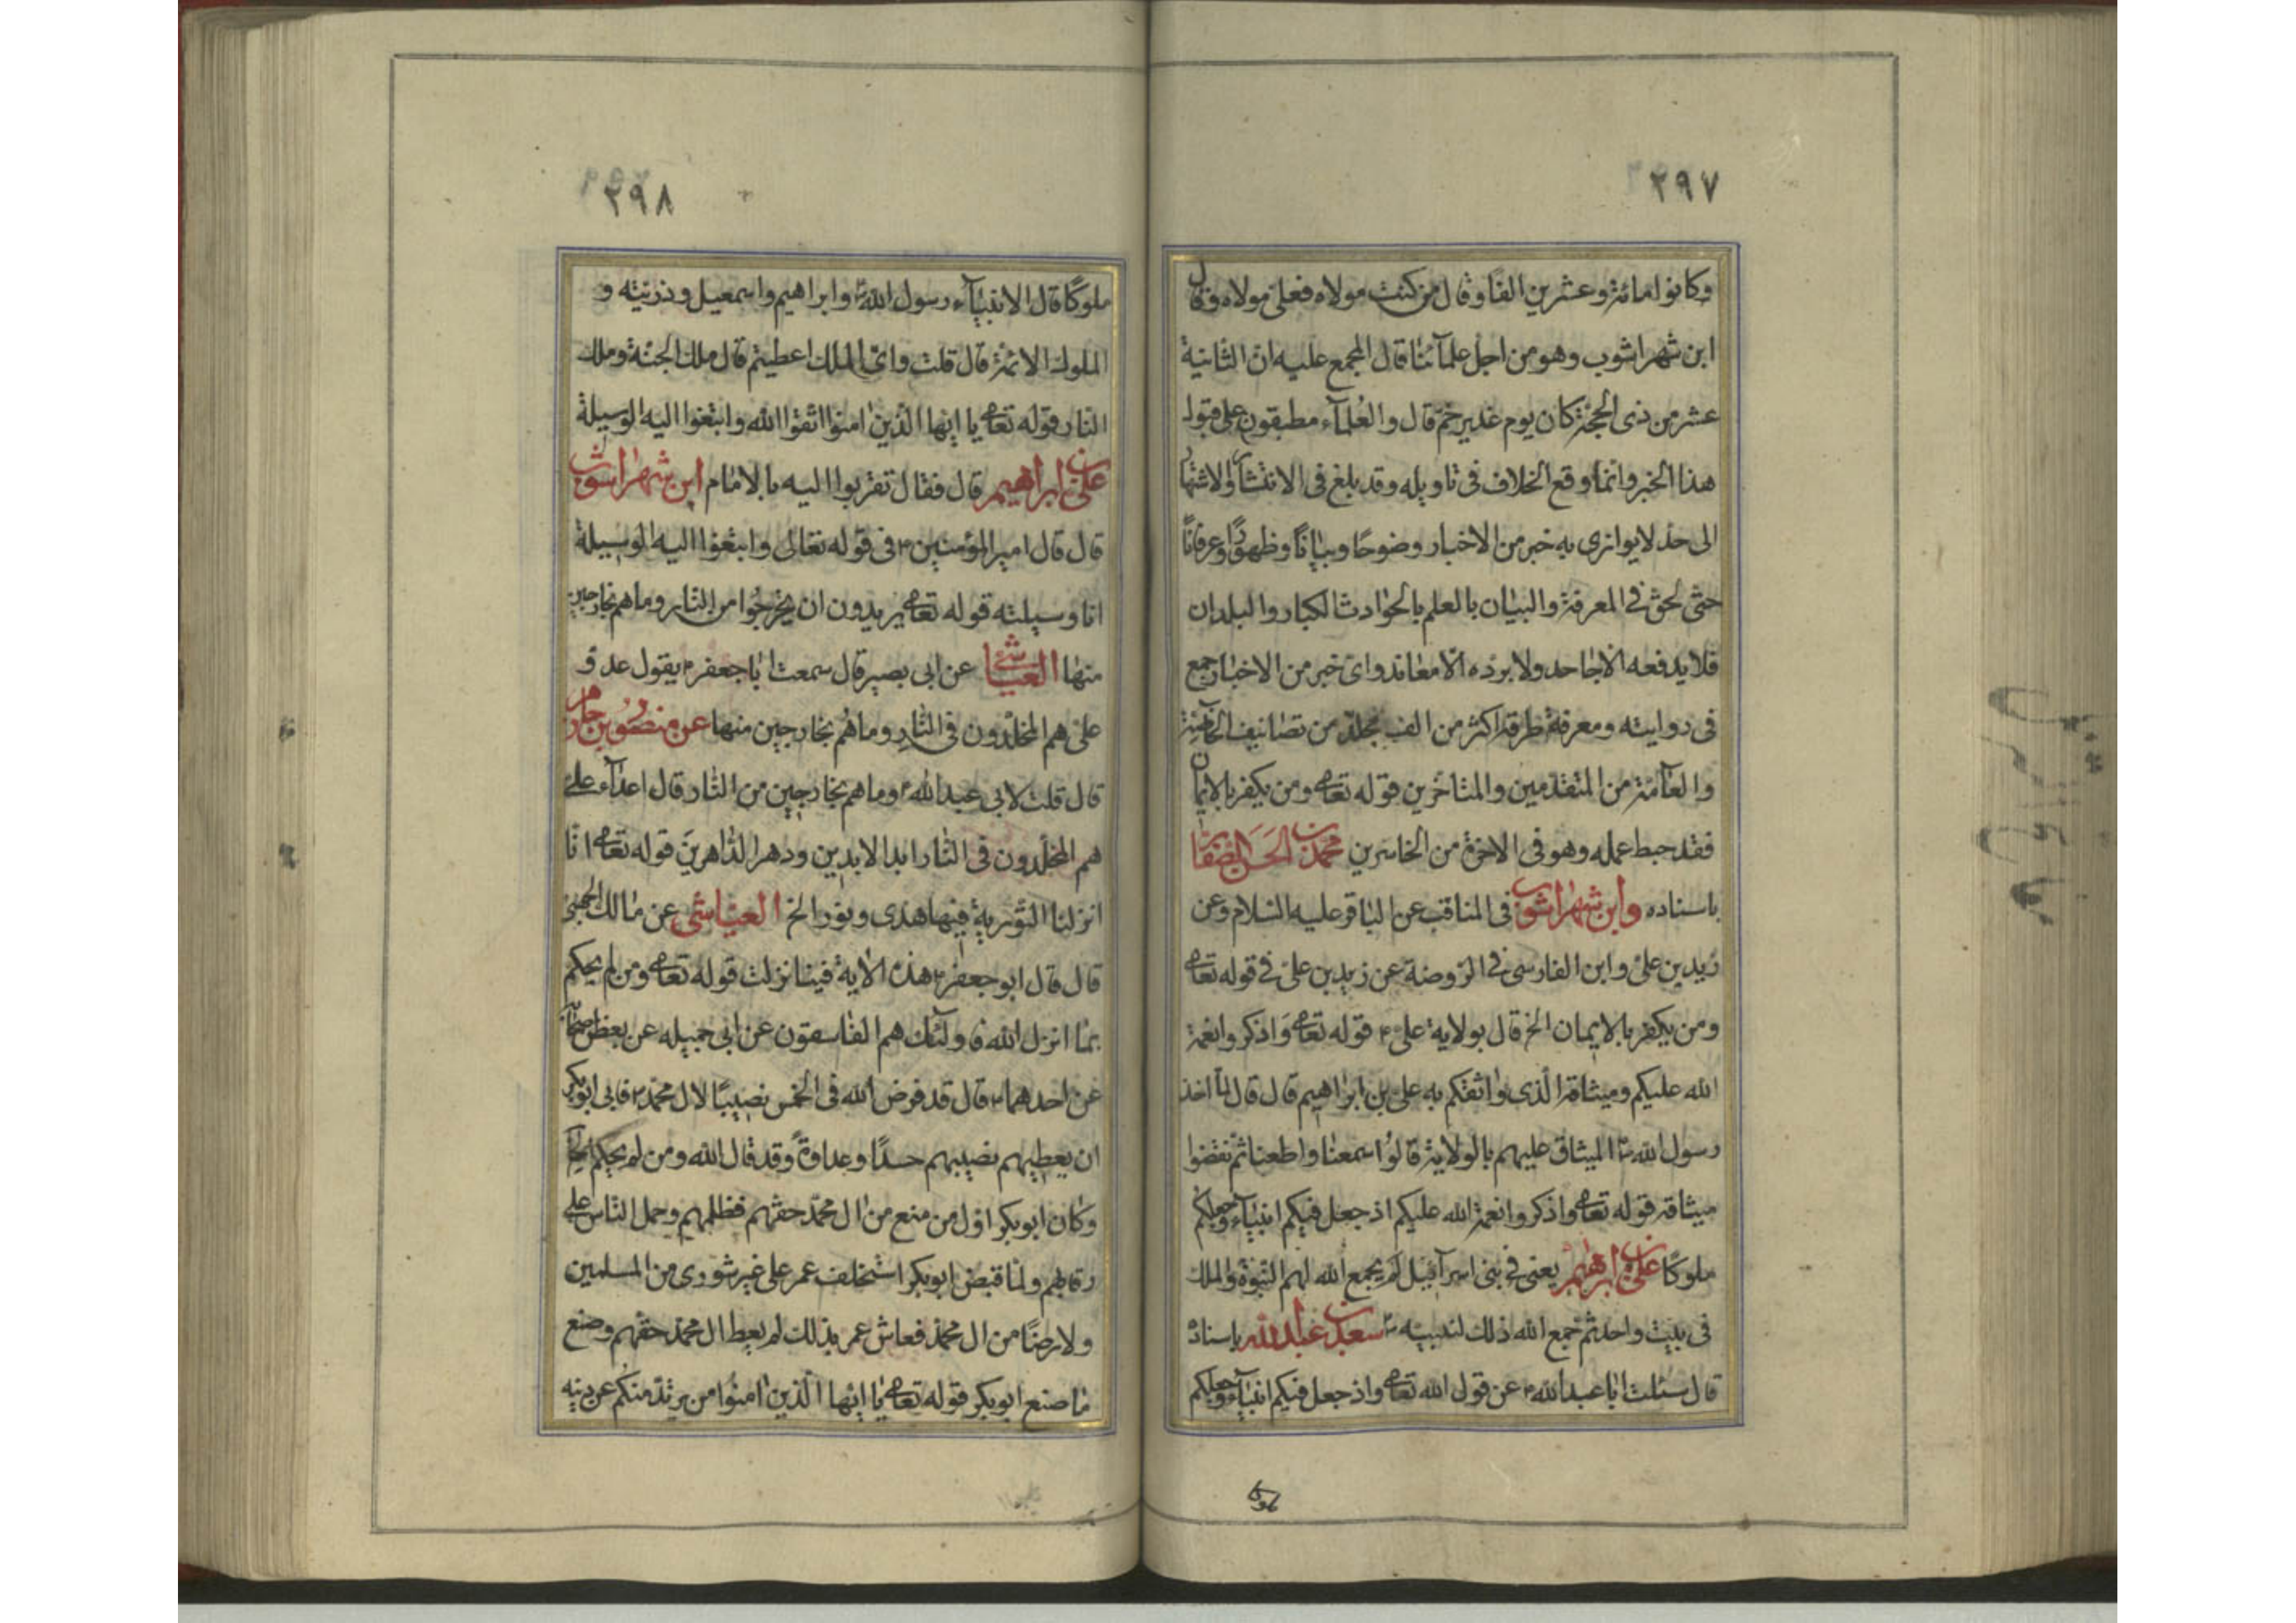 ٢٩٧
وكانوا مائة وعشرين الفا وقال من كنت مولاه فعلى مولاه وقال
ابن شهراشوب وهو من اجل علمآئنا قال المجمع عليه ان الثانية
عشر من ذى الحجة كان يوم غدير خم قال والعلمآء مطبقون على قبول
هذا الخبر وانما وقع الخلاف فى تاويله وقد بلغ فى الانتشار والاشتهار
الى حد لا يوازى به خبر من الاخبار وضوحا وبيانا وظهورا وعرفانا
حتى لحق فى المعرفة والبيان بالعلم بالحوادث الكبار والبلدان
فلا يدفعه الا جاحد ولا يرده الا معاند واى خبر من الاخبار جمع
فى روايته ومعرفة طرقه اكثر من الف مجلد من تصانيف الخاصة
والعآمة من المتقدمين والمتاخرين قوله تعالى ومن يكفر بالايمان
فقد حبط عمله وهو فى الاخرة من الخاسرين محمد بن الحسن الصفار
باسناده وابن شهراشوب فى المناقب عن الباقر عليه السلام وعن
زيد بن على وابن الفارسى فى الروضة عن زيد بن على فى قوله تعالى
ومن يكفر بالايمان الخ قال بولاية على ع قوله تعالى واذكروا نعمة
الله عليكم وميثاقه الذى واثقكم به على بن ابراهيم قال قال لمآ اخذ
رسول الله ص الميثاق عليهم بالولاية قالوا سمعنا واطعنا ثم نقضوا
ميثاقه قوله تعالى واذكروا نعمة الله عليكم اذ جعل فيكم انبيآء وجعلكم
ملوكا على بن ابراهيم يعنى فى بنى اسرآئيل لم يجمع الله لهم النبوة والملك
فى بيت واحد ثم جمع الله ذلك لنبيه ص سعد بن عبد الله باسناده
قال سئلت ابا عبد الله ع عن قول الله تعالى واذ جعل فيكم انبيآء وجعلكم
٢٩٨
ملوكا قال الانبيآء رسول الله ص وابراهيم واسمعيل وذريته و
الملوك الائمة قال قلت واى الملك اعطيتم قال ملك الجنة وملك
النار قوله تعالى يا ايها الذين امنوا اتقوا الله وابتغوا اليه الوسيلة
على بن ابراهيم قال فقال تقربوا اليه بالامام ابن شهراشوب
قال قال امير المؤمنين ع فى قوله تعالى وابتغوا اليه الوسيلة
انا وسيلته قوله تعالى يريدون ان يخرجوا من النار وما هم بخارجين
منها العياشى عن ابى بصير قال سمعت ابا جعفر ع يقول عدو
على هم المخلدون فى النار وما هم بخارجين منها عن منصور بن حازم
قال قلت لابى عبد الله ع وما هم بخارجين من النار قال اعدآء على
هم المخلدون فى النار ابد الابدين ودهر الداهرين قوله تعالى انا
انزلنا التورية فيها هدى ونور الخ العياشى عن مالك الجهنى
قال قال ابو جعفر ع هذه الاية فينا نزلت قوله تعالى ومن لم يحكم
بما انزل الله فاولئك هم الفاسقون عن ابى جميله عن بعض اصحابه
عن احدهما ع قال قد فرض الله فى الخمس نصيبا لال محمد ص فابى ابوبكر
ان يعطيهم نصيبهم حسدا وعداوة وقد قال الله ومن لم يحكم الخ
وكان ابوبكر اول من منع من ال محمد حقهم فظلمهم وحمل الناس على
رقابهم ولما قبض ابوبكر استخلف عمر على غير شورى من المسلمين
ولا رضا من ال محمد فعاش عمر بذلك لم يعط ال محمد حقهم وصنع
ما صنع ابوبكر قوله تعالى يا ايها الذين امنوا من يرتد منكم عن دينه